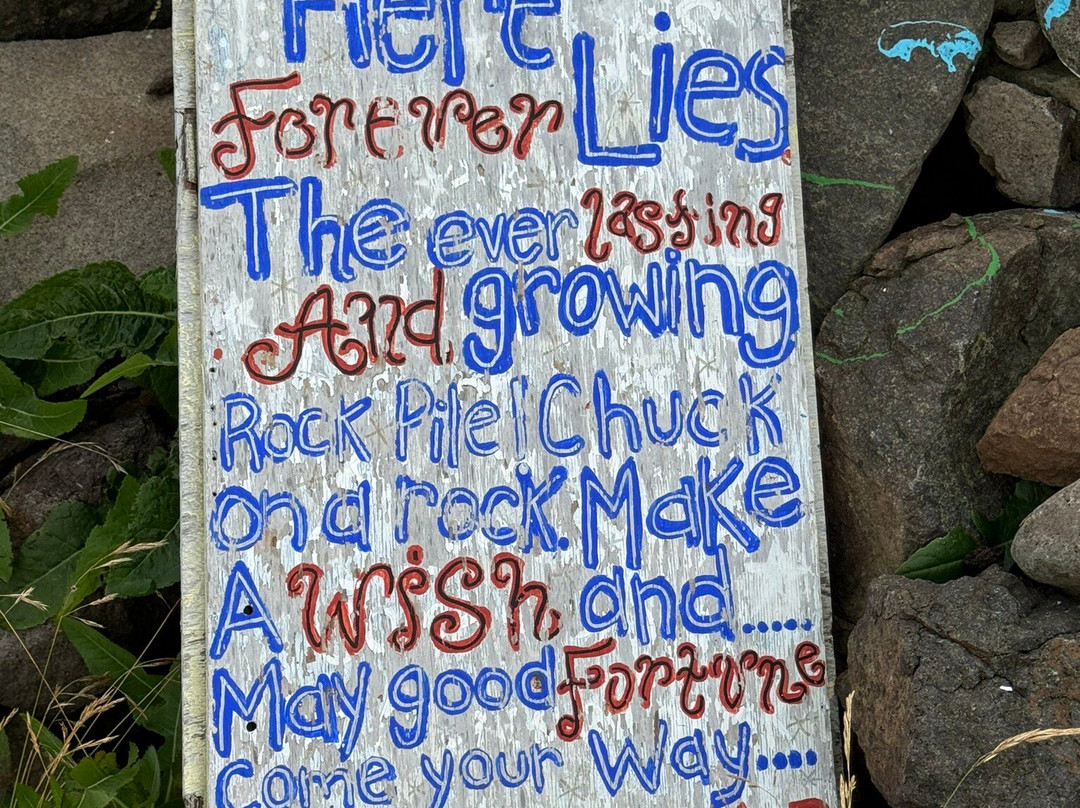 Here Lies
Forever
The ever lasting
And growing
Rock Pile! Chuck
on a rock. Make
A Wish and.....
May good Fortune
come your Way....